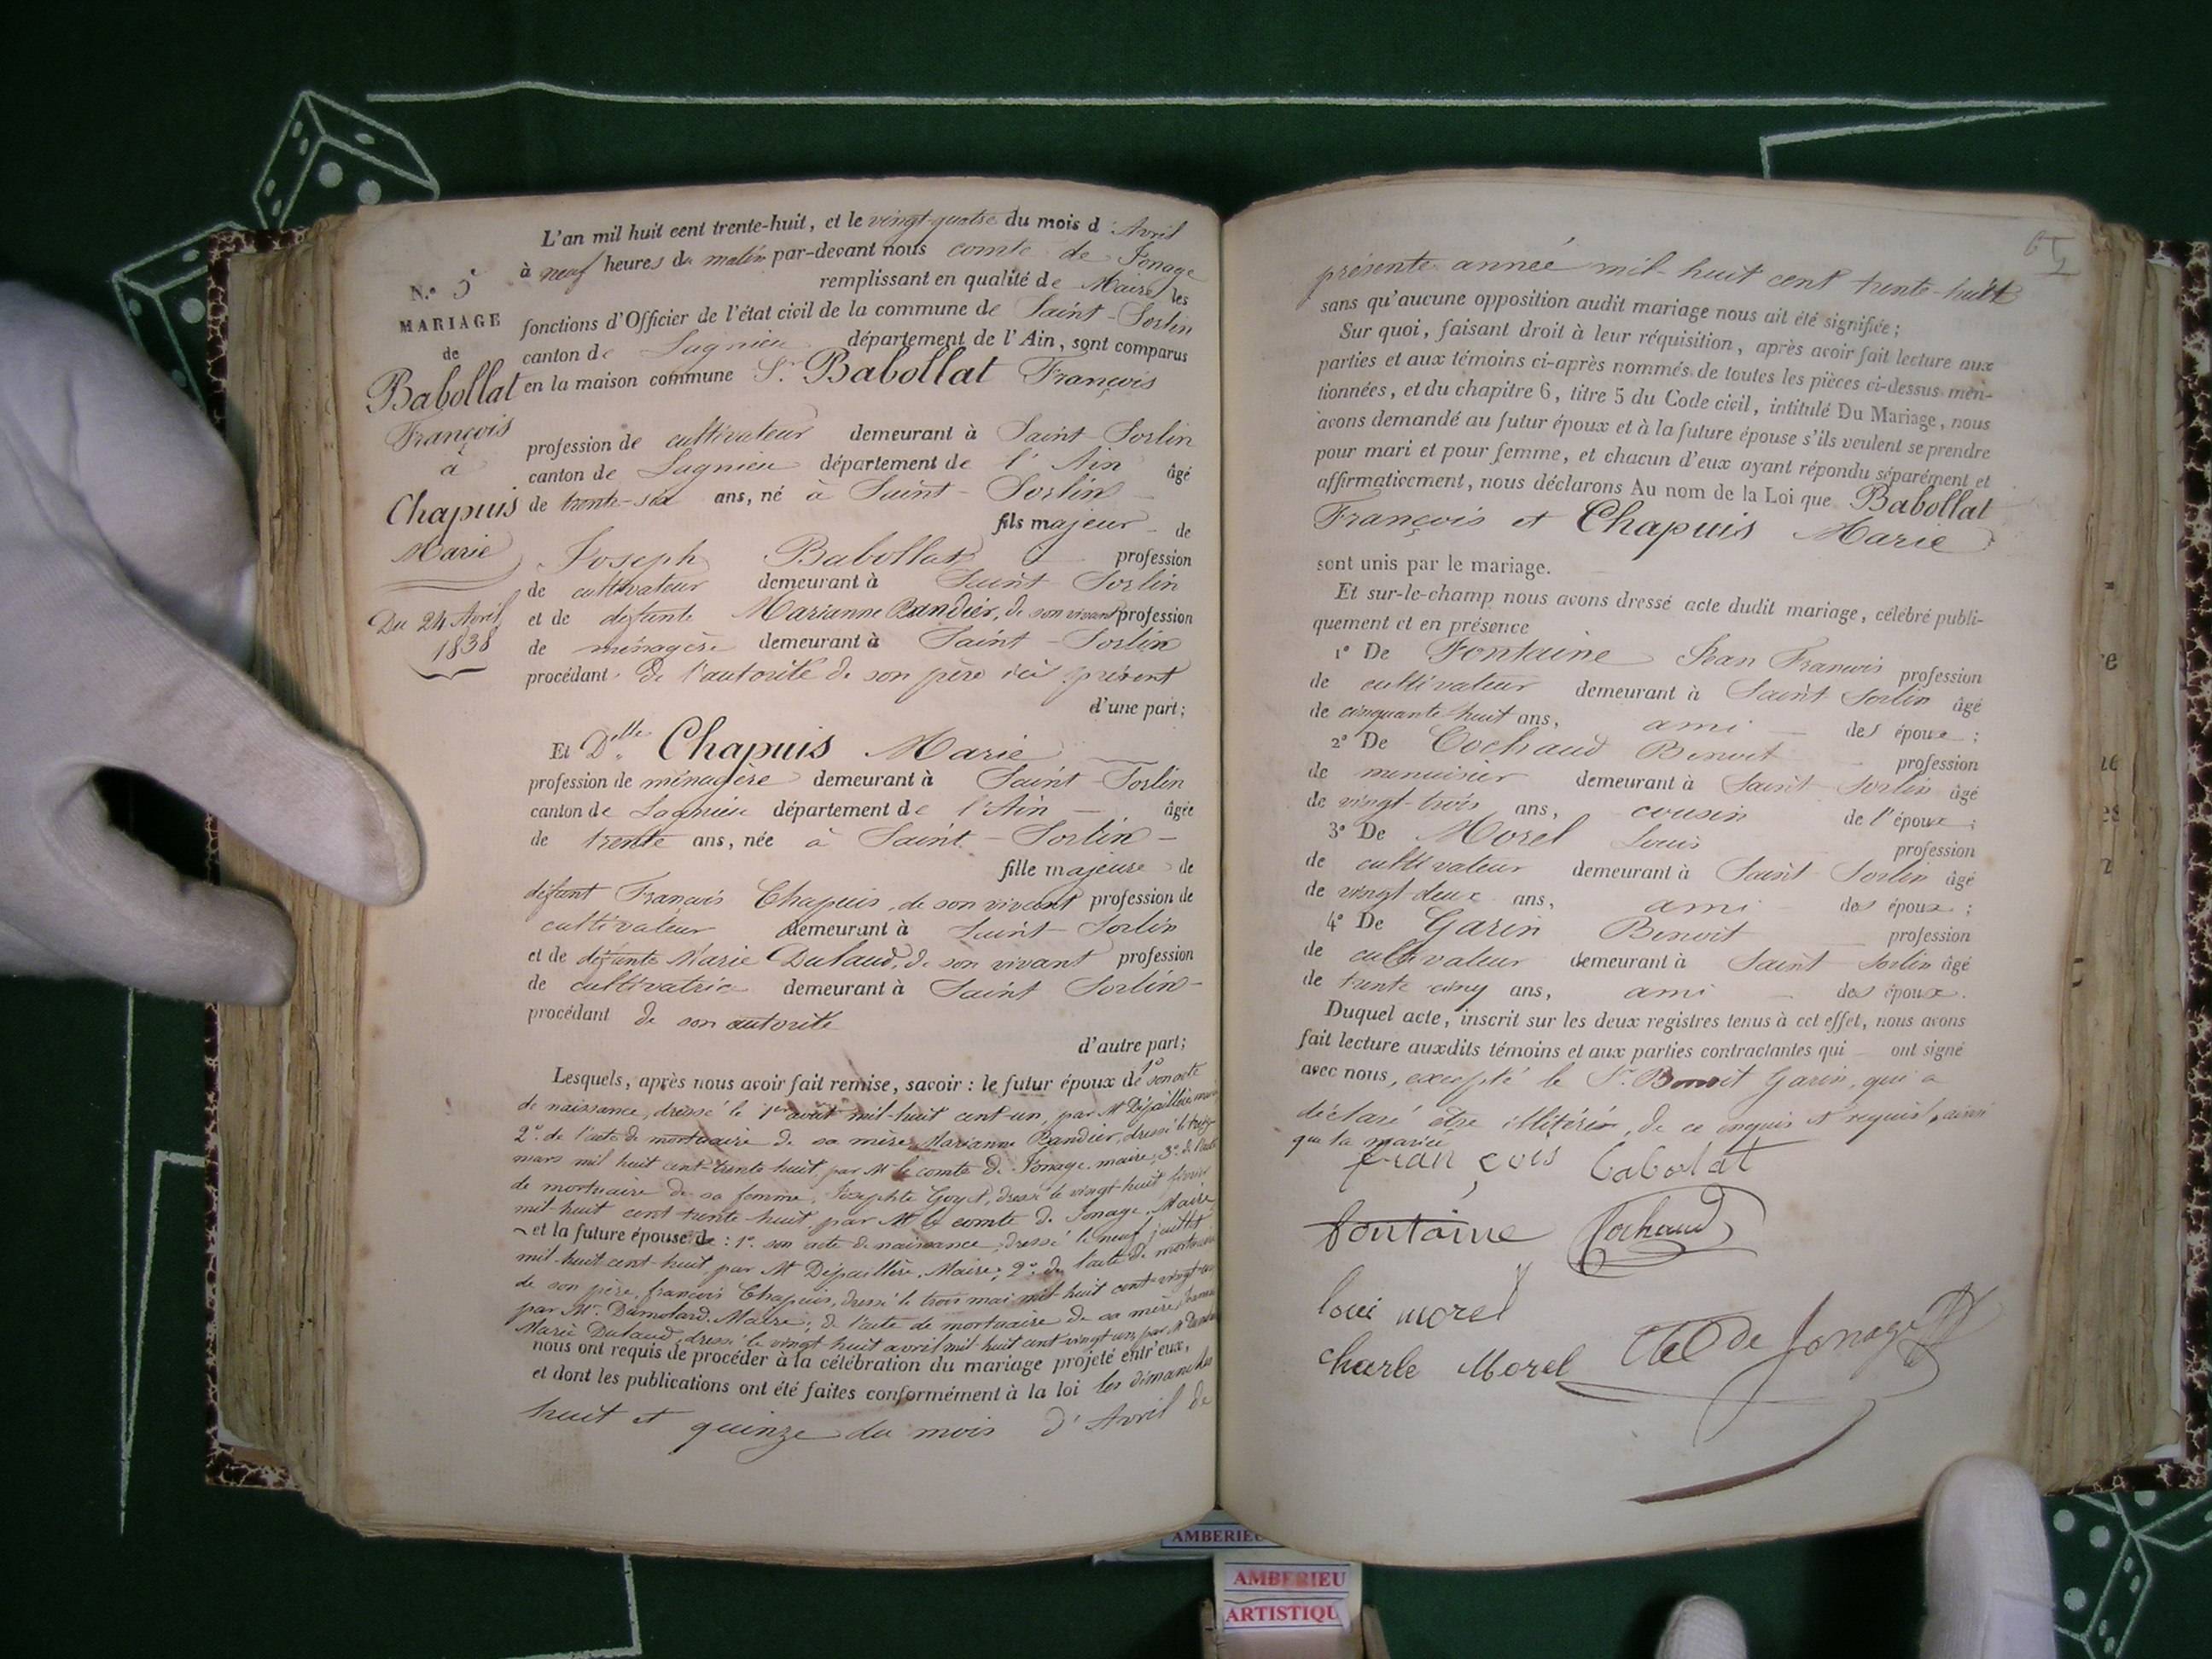 N.º 5
MARIAGE
de
Babollat
François
à
Chapuis
Marie
Du 24 Avril
1838
L'an mil huit cent trente-huit, et le vingt-quatre du mois d'Avril
à neuf heures du matin par-devant nous comte de Jonage
remplissant en qualité de Maire les
fonctions d'Officier de l'état civil de la commune de Saint-Sorlin
canton de Lagnieu département de l'Ain, sont comparus
en la maison commune Sr. Babollat François
profession de cultivateur demeurant à Saint Sorlin
canton de Lagnieu département de l'Ain âgé
de trente-six ans, né à Saint-Sorlin
fils majeur de
Joseph Babollat profession
de cultivateur demeurant à Saint Sorlin
et de défunte Marianne Randier, de son vivant profession
de ménagère demeurant à Saint-Sorlin
procédant de l'autorité de son père ici présent
d'une part;
Et Delle Chapuis Marie
profession de ménagère demeurant à Saint-Sorlin
canton de Lagnieu département de l'Ain âgée
de trente ans, née à Saint-Sorlin
fille majeure de
défunt François Chapuis, de son vivant profession de
cultivateur demeurant à Saint-Sorlin
et de défunte Marie Dulaud, de son vivant profession
de cultivatrice demeurant à Saint Sorlin
procédant de son autorité
d'autre part;
Lesquels, après nous avoir fait remise, savoir : le futur époux de 1º son acte
de naissance, dressé le 1er août mil-huit cent-un, par Mr Dépaillère
2º. de l'acte de mortuaire de sa mère Marianne Randier, dressé le
mars mil huit cent-trente huit, par Mr le comte de Jonage, maire; 3º. de l'acte
de mortuaire de sa femme, Josephte Goyet, dressé le vingt-huit février
mil-huit cent trente huit, par Mr le comte de Jonage, Maire
et la future épouse de : 1º. son acte de naissance, dressé le neuf juillet
mil-huit cent-huit, par Mr Dépaillère, Maire; 2º. de l'acte de mortuaire
de son père, françois Chapuis, dressé le trois mai mil-huit cent-vingt-
par Mr. Dumolard, Maire; de l'acte de mortuaire de sa mère,
Marie Dulaud, dressé le vingt-huit avril mil-huit cent-vingt-un, par Mr
nous ont requis de procéder à la célébration du mariage projeté entr'eux,
et dont les publications ont été faites conformément à la loi les dimanches
huit et quinze du mois d'Avril de
65
présente année mil-huit cent trente-huit
sans qu'aucune opposition audit mariage nous ait été signifiée;
Sur quoi, faisant droit à leur réquisition, après avoir fait lecture aux
parties et aux témoins ci-après nommés de toutes les pièces ci-dessus men-
tionnées, et du chapitre 6, titre 5 du Code civil, intitulé Du Mariage, nous
avons demandé au futur époux et à la future épouse s'ils veulent se prendre
pour mari et pour femme, et chacun d'eux ayant répondu séparément et
affirmativement, nous déclarons Au nom de la Loi que Babollat
François et Chapuis Marie
sont unis par le mariage.
Et sur-le-champ nous avons dressé acte dudit mariage, célébré publi-
quement et en présence
1º De Fontaine Jean François profession
de cultivateur demeurant à Saint Sorlin âgé
de cinquante-huit ans, ami des époux ;
2º De Cochaud Benoit profession
de menuisier demeurant à Saint Sorlin âgé
de vingt-trois ans, cousin de l'époux ;
3º De Morel Louis profession
de cultivateur demeurant à Saint Sorlin âgé
de vingt-deux ans, ami des époux ;
4º De Garin Benoit profession
de cultivateur demeurant à Saint Sorlin âgé
de trente cinq ans, ami des époux.
Duquel acte, inscrit sur les deux registres tenus à cet effet, nous avons
fait lecture auxdits témoins et aux parties contractantes qui ont signé
avec nous, excepté le Sr. Benoit Garin, qui a
déclaré être illitéré, de ce enquis et requis, ainsi
que la mariée
françois babolat
fontaine Cochaud
loui morel
charle Morel Cte de Jonage
AMBERIEU
AMBERIEU
ARTISTIQU